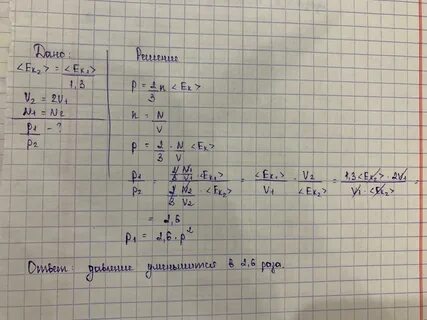 Дано:
<Eк₂> = <Eк₁>/1,3
V₂ = 2V₁
N₁ = N₂
p₁/p₂ - ?
Решение
p = 2/3 n <Eк>
n = N/V
p = 2/3 · N/V <Eк>
p₁/p₂ = (2/3 N₁/V₁ · <Eк₁>)/(2/3 N₂/V₂ · <Eк₂>) = <Eк₁>/V₁ · V₂/<Eк₂> = (1,3<Eк₂> · 2V₁)/(V₁ · <Eк₂>) =
= 2,6
p₁ = 2,6 · p²
Ответ: давление уменьшится в 2,6 раза.